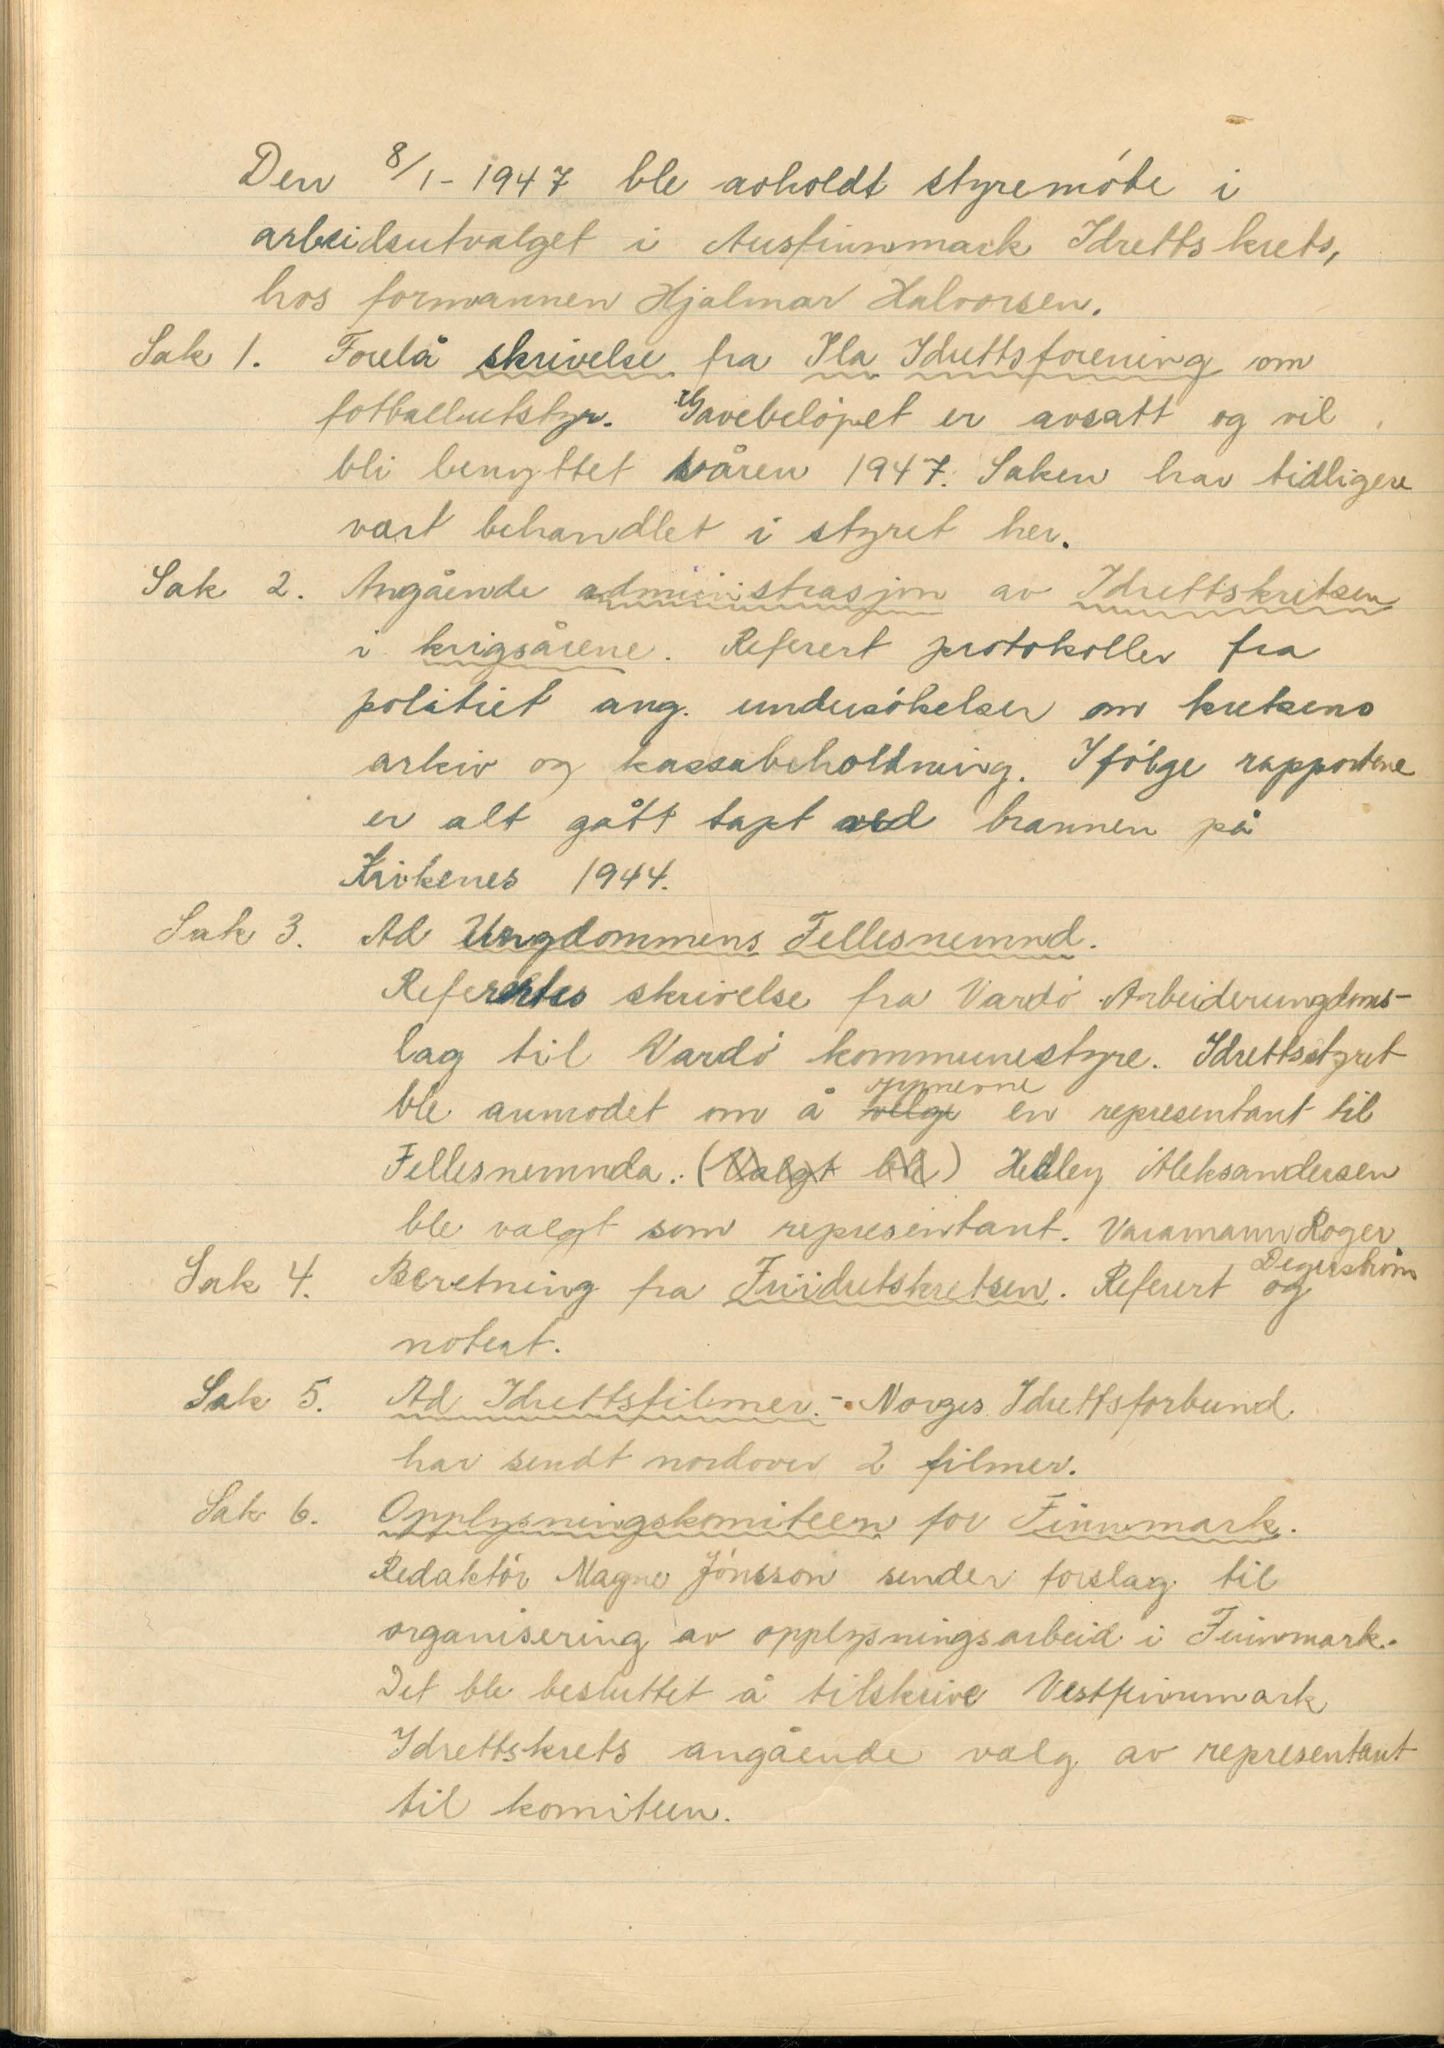 Den 8/1-1947 ble avholdt styremöte i
arbeidsutvalget i Austfinnmark Idrettskrets,
hos formannen Hjalmar Halvorsen.
Sak 1. Forelå skrivelse fra Ila Idrettsforening om
fotballutstyr. Gavebelöpet er avsatt og vil
bli benyttet våren 1947. Saken har tidligere
vært behandlet i styret her.
Sak 2. Angående administrasjon av Idrettskretsen
i krigsårene. Referert protokoller fra
politiet ang. undersökelser om kretsens
arkiv og kassabeholdning. Ifölge rapportene
er alt gått tapt ved brannen på
Kirkenes 1944.
Sak 3. Ad Ungdommens Fellesnemnd.
Refertes skrivelse fra Vardö Arbeiderungdoms-
lag til Vardö kommunestyre. Idrettsstyret
ble anmodet om å velge oppnevne en representant til
Fellesnemnda. (Valgt ble) Hedley Aleksandersen
ble valgt som representant. Varamann Roger
Degerström
Sak 4. Beretning fra Friidretskretsen. Referert og
notert.
Sak 5. Ad Idrettsfilmer. - Norges Idrettsforbund
har sendt nordover 2 filmer.
Sak 6. Opplysningskomiteen for Finnmark.
Redaktör Magne Jönsson sender forslag til
organisering av opplysningsarbeid i Finnmark.
Det ble besluttet å tilskrive Vestfinnmark
Idrettskrets angående valg av representant
til komiteen.